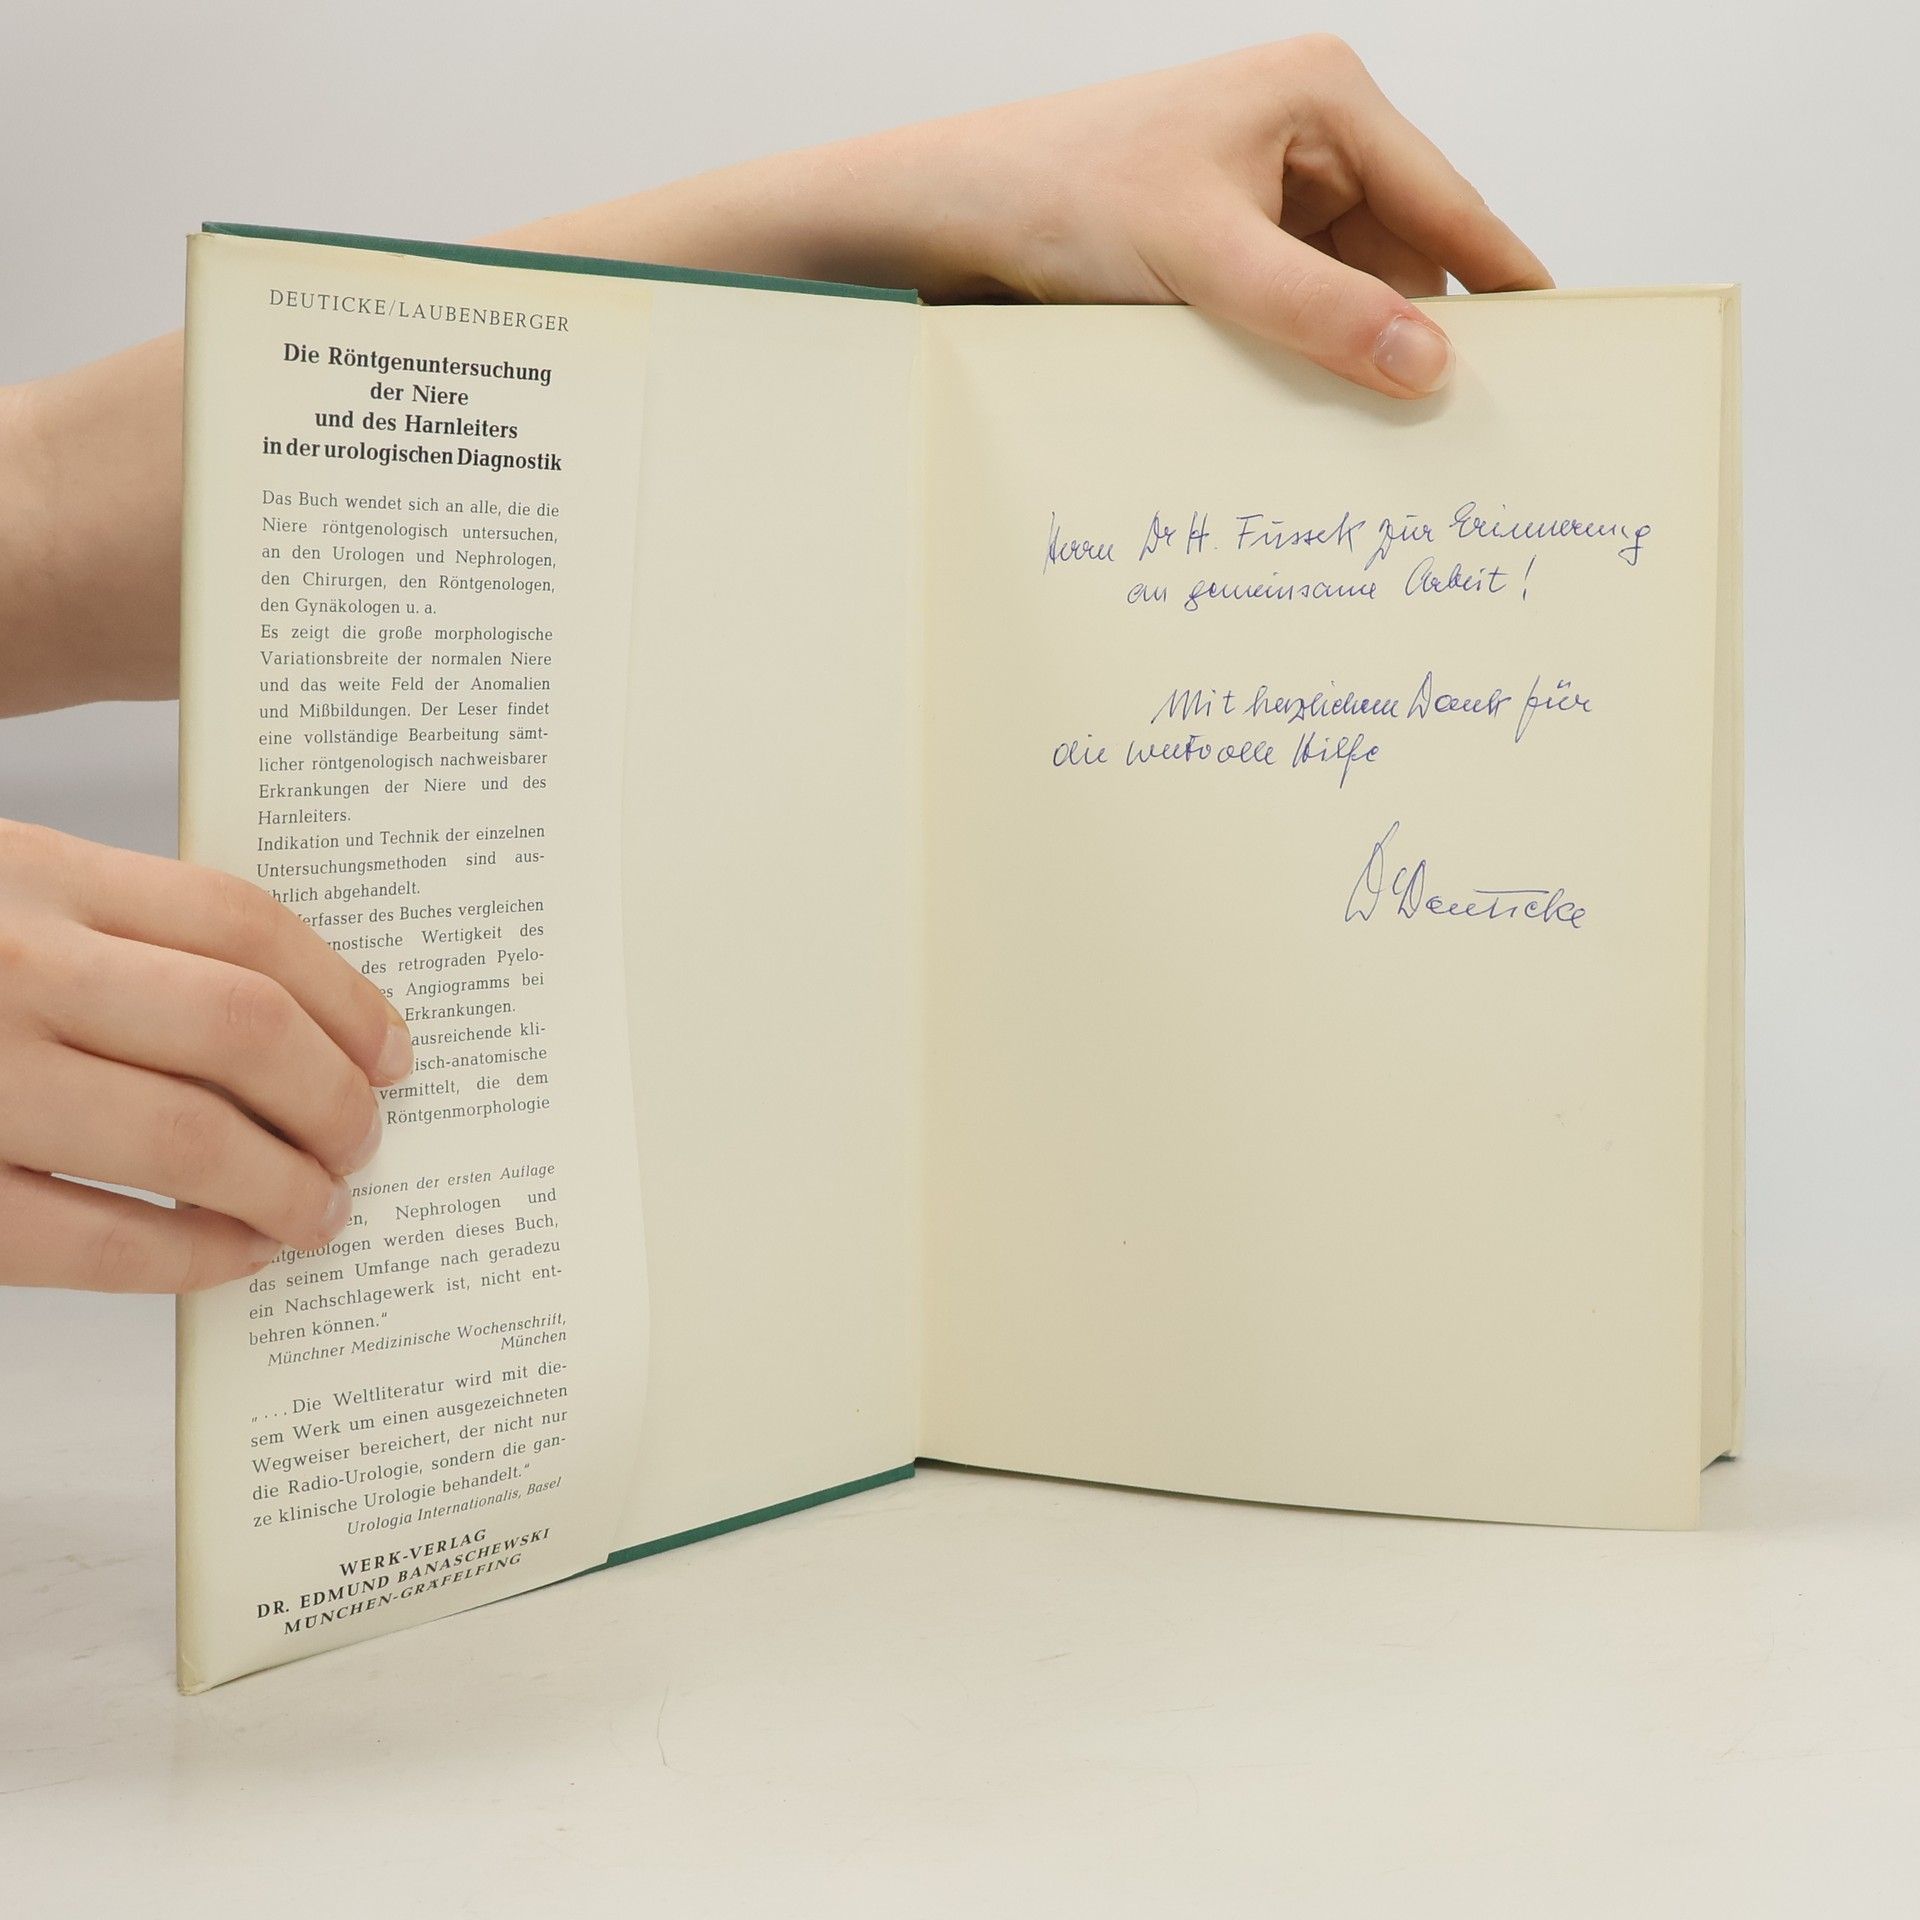 DEUTICKE/LAUBENBERGER
Die Röntgenuntersuchung
der Niere
und des Harnleiters
in der urologischen Diagnostik
Das Buch wendet sich an alle, die die
Niere röntgenologisch untersuchen,
an den Urologen und Nephrologen,
den Chirurgen, den Röntgenologen,
den Gynäkologen u. a.
Es zeigt die große morphologische
Variationsbreite der normalen Niere
und das weite Feld der Anomalien
und Mißbildungen. Der Leser findet
eine vollständige Bearbeitung sämt-
licher röntgenologisch nachweisbarer
Erkrankungen der Niere und des
Harnleiters.
Indikation und Technik der einzelnen
Untersuchungsmethoden sind aus-
hrlich abgehandelt.
erfasser des Buches vergleichen
gnostische Wertigkeit des
des retrograden Pyelo-
es Angiogramms bei
Erkrankungen.
ausreichende kli-
isch-anatomische
vermittelt, die dem
Röntgenmorphologie
nsionen der ersten Auflage
en, Nephrologen und
ntgenologen werden dieses Buch,
das seinem Umfange nach geradezu
ein Nachschlagewerk ist, nicht ent-
behren können.“
Münchner Medizinische Wochenschrift,
München
„...Die Weltliteratur wird mit die-
sem Werk um einen ausgezeichneten
Wegweiser bereichert, der nicht nur
die Radio-Urologie, sondern die gan-
ze klinische Urologie behandelt.“
Urologia Internationalis, Basel
WERK-VERLAG
DR. EDMUND BANASCHEWSKI
MÜNCHEN-GRÄFELFING
Herrn Dr H. Füssek zur Erinnerung
an gemeinsame Arbeit!
Mit herzlichem Dank für
die wertvolle Hilfe
Dr Deuticke